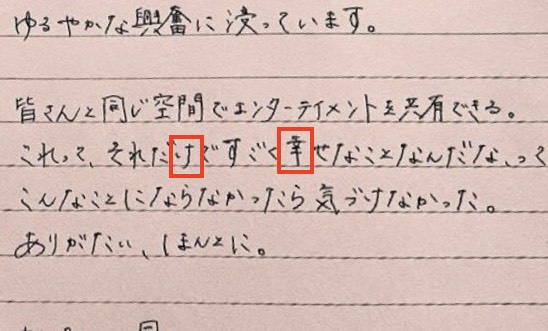 ゆるやかな興奮に浸っています。
皆さんと同じ空間でエンターテイメントを共有できる。
これって、それだけですごく幸せなことなんだな、って
こんなことにならなかったら気づけなかった。
ありがたい、ほんとに。